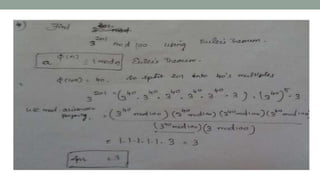 4) Find
3^201 mod 100 using Euler's Theorem.
a^ϕ(n) ≡ 1 mod n Euler's Theorem.
ϕ(100) = 40. So split 201 into 40's multiples
3^201 = (3^40 . 3^40 . 3^40 . 3^40 . 3^40 . 3) = (3^40)^5 . 3
use mod arithmetic = (3^40 mod 100) (3^40 mod 100) (3^40 mod 100) (3^40 mod 100)
property. (3^40 mod 100) (3 mod 100)
= 1.1.1.1.1.3 = 3
Ans = 3